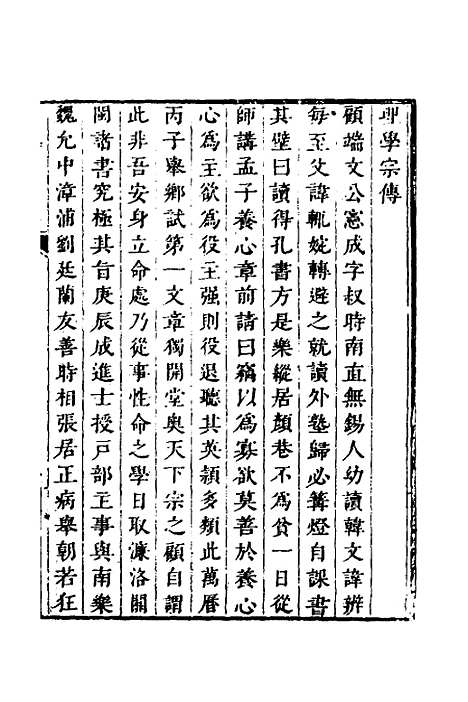 理學宗傳
顧端文公憲成字叔時南直無錫人幼讀韓文諱辨
每至父諱輒婉轉避之就讀外塾歸必篝燈自課書
其壁曰讀得孔書方是樂縱居顏巷不為貧一日從
師講孟子養心章前請曰竊以為寡欲莫善於養心
心為主欲為役主强則役退聽其英頴多類此萬曆
丙子舉鄉試第一文章獨開堂奥天下宗之顧自謂
此非吾安身立命處乃從事性命之學日取濂洛關
閩諸書究極其旨庚辰成進士授戸部主事與南樂
魏允中漳浦劉廷蘭友善時相張居正病舉朝若狂